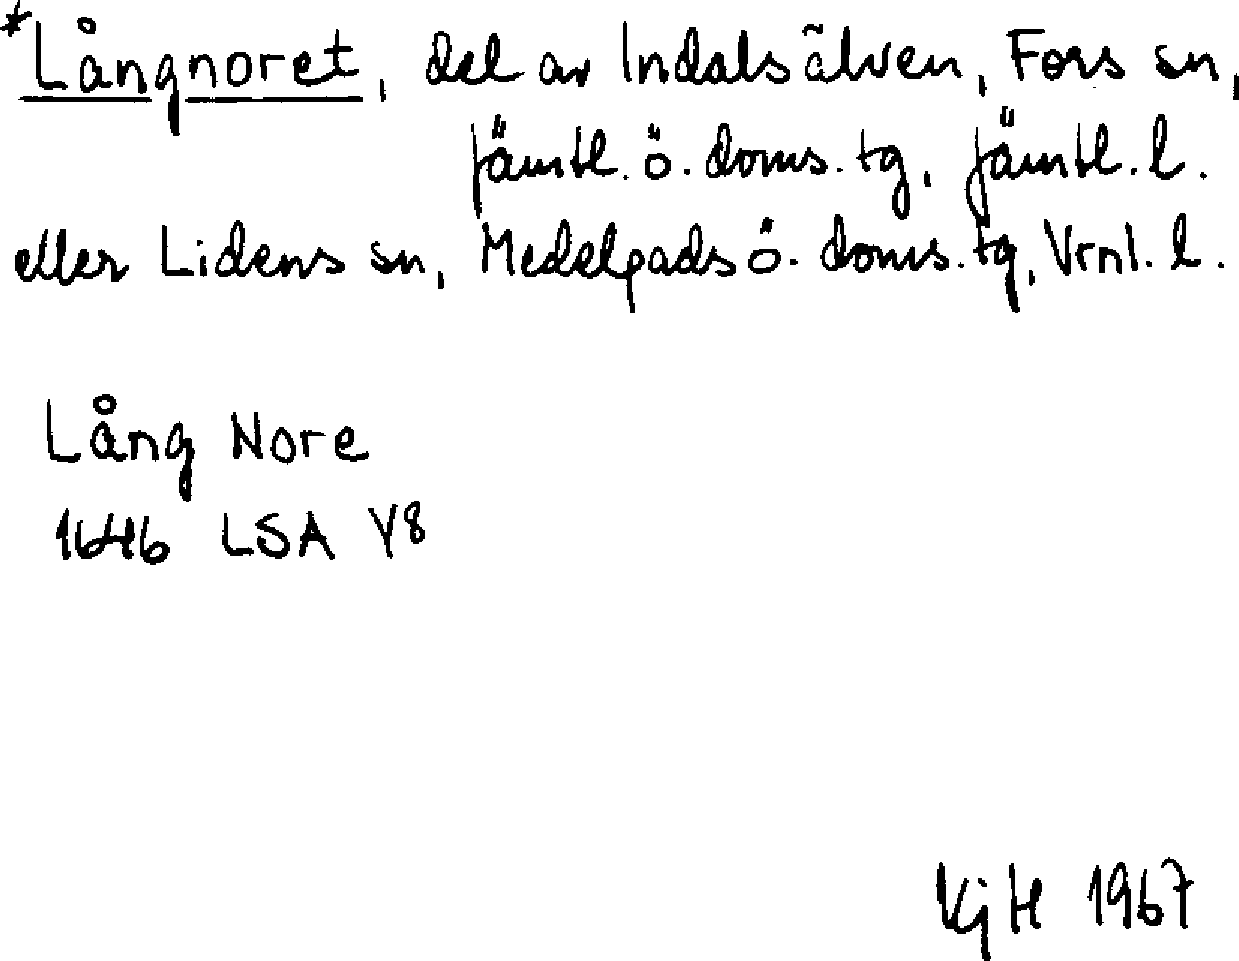 *Långnoret, del av Indalsälven, Fors sn,
Jämtl. ö. doms. tg, Jämtl. l.
eller Lidens sn, Medelpads ö. doms. tg, Vrnl. l.
Lång Nore
1646 LSA Y8
KjH 1967